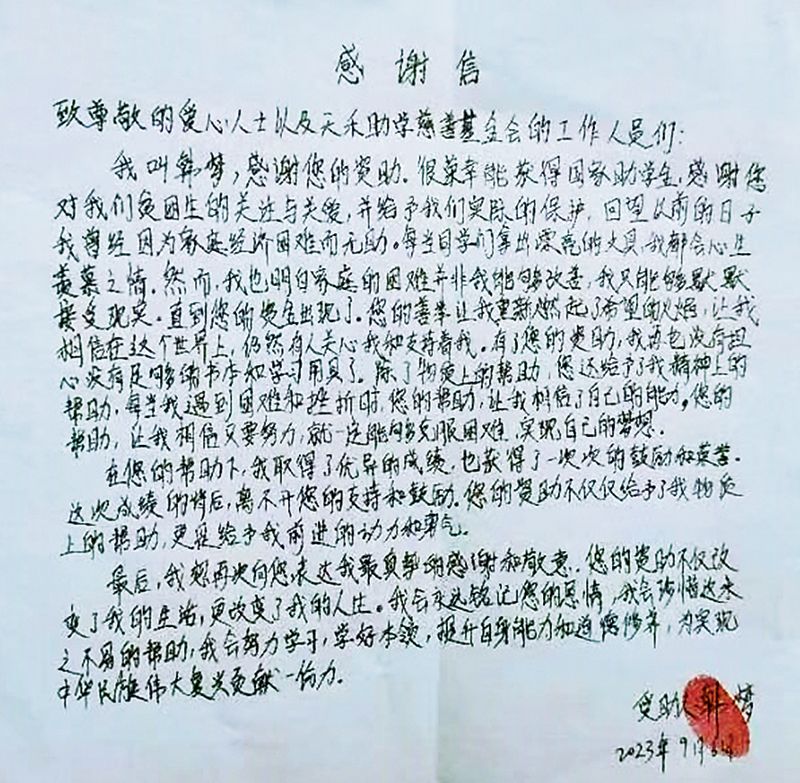 感谢信
致尊敬的爱心人士以及天禾助学慈善基金会的工作人员们:
我叫韩梦,感谢您的资助。很荣幸能获得国家助学金,感谢您
对我们贫困生的关注与关爱,并给予我们实际的保护,回望以前的日子
我曾经因为家庭经济困难而无助。每当同学们拿出漂亮的文具,我都会心生
羡慕之情。然而,我也明白家庭的困难并非我能够改善,我只能够默默
接受现实。直到您的资金出现了。您的善举让我重新燃起了希望的火焰,让我
相信在这个世界上,仍然有人关心我和支持着我。有了您的资助,我再也没有担
心没有足够的书本和学习用具了。除了物质上的帮助,您还给予了我精神上的
帮助,每当我遇到困难和挫折时,您的帮助,让我相信了自己的能力。您的
帮助,让我相信只要努力,就一定能够克服困难,实现自己的梦想。
在您的帮助下,我取得了优异的成绩,也获得了一次次的鼓励和荣誉。
这次成绩的背后,离不开您的支持和鼓励。您的资助不仅仅给予了我物质
上的帮助,更是给予我前进的动力和勇气。
最后,我想再次向您表达我最真挚的感谢和敬意。您的资助不仅改
变了我的生活,更改变了我的人生。我会永远铭记您的恩情,我会珍惜这来
之不易的帮助,我会努力学习,学好本领,提升自身能力和道德修养,为实现
中华民族伟大复兴贡献一份力。
受助人 韩梦
2023年9月